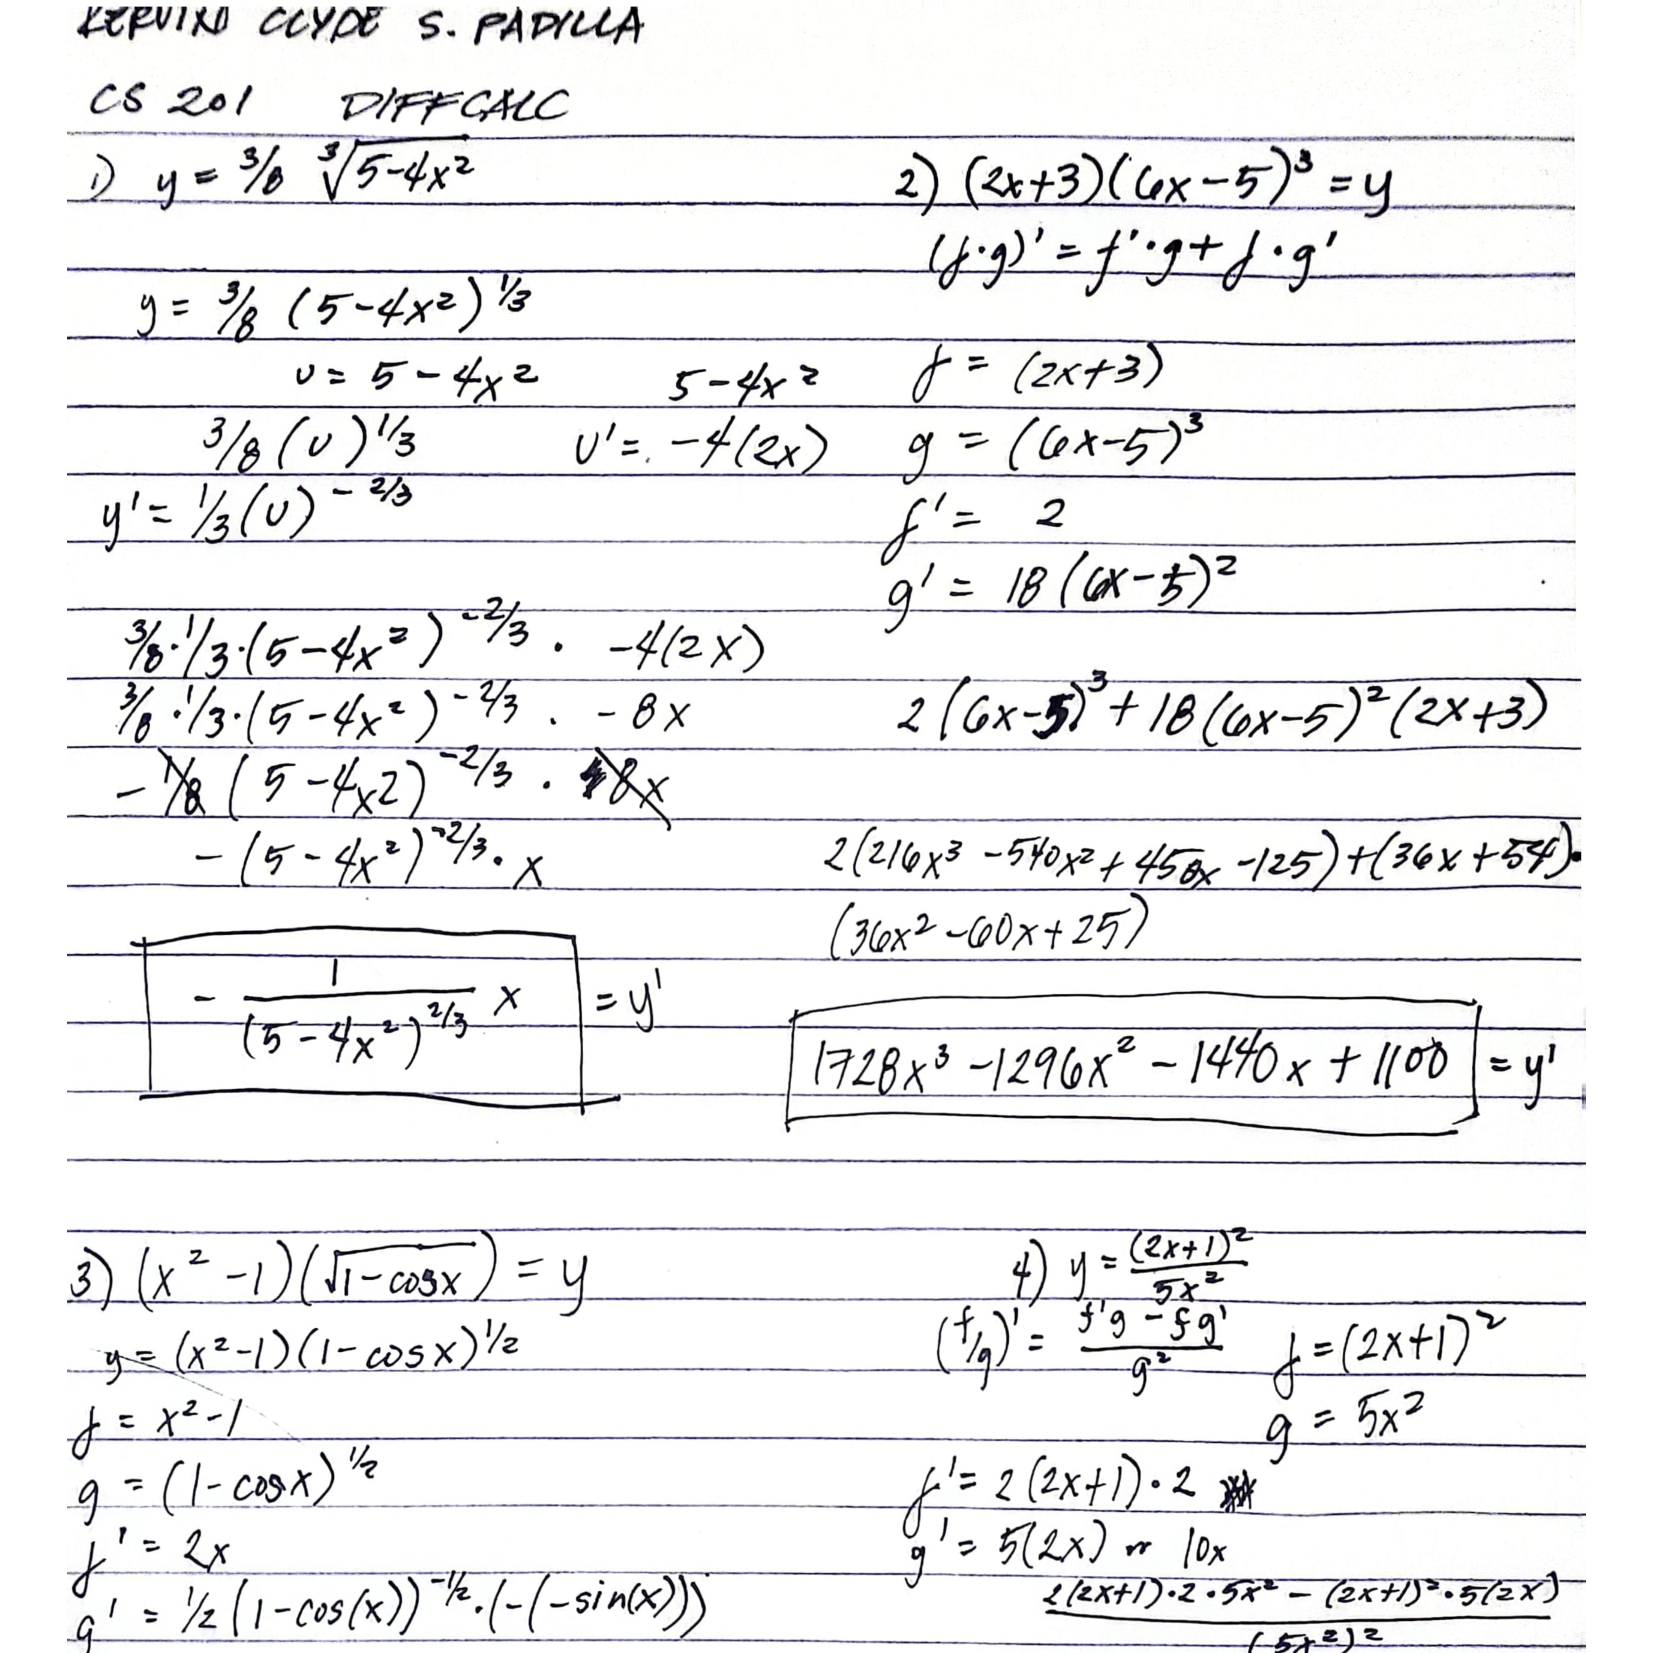 CLYDE S. PADILLA
CS 201 DIFFCALC
1) y = 3/8 ∛(5-4x²)
y = 3/8 (5-4x²)^1/3
u = 5-4x² 5-4x²
3/8 (u)^1/3 u' = -4(2x)
y' = 1/3 (u)^-2/3
3/8·1/3·(5-4x²)^-2/3 · -4(2x)
3/8·1/3·(5-4x²)^-2/3 · -8x
-1/8 (5-4x2)^-2/3 · 8x
-(5-4x²)^-2/3 · x
- 1/(5-4x²)^2/3 x = y'
2) (2x+3)(6x-5)³ = y
(f·g)' = f'·g + f·g'
f = (2x+3)
g = (6x-5)³
f' = 2
g' = 18(6x-5)²
2(6x-5)³ + 18(6x-5)²(2x+3)
2(216x³ -540x² + 450x -125) + (36x+54)·
(36x² -60x + 25)
1728x³ -1296x² - 1440x + 1100 = y'
3) (x² -1)(√(1-cosx)) = y
y = (x²-1)(1-cosx)^1/2
f = x²-1
g = (1-cosx)^1/2
f' = 2x
g' = 1/2 (1-cos(x))^-1/2 · (-(-sin(x)))
4) y = (2x+1)²/5x²
(f/g)' = f'g - fg'/g² f = (2x+1)²
g = 5x²
f' = 2(2x+1)·2
g' = 5(2x) or 10x
2(2x+1)·2·5x² - (2x+1)²·5(2x)
(5x²)²